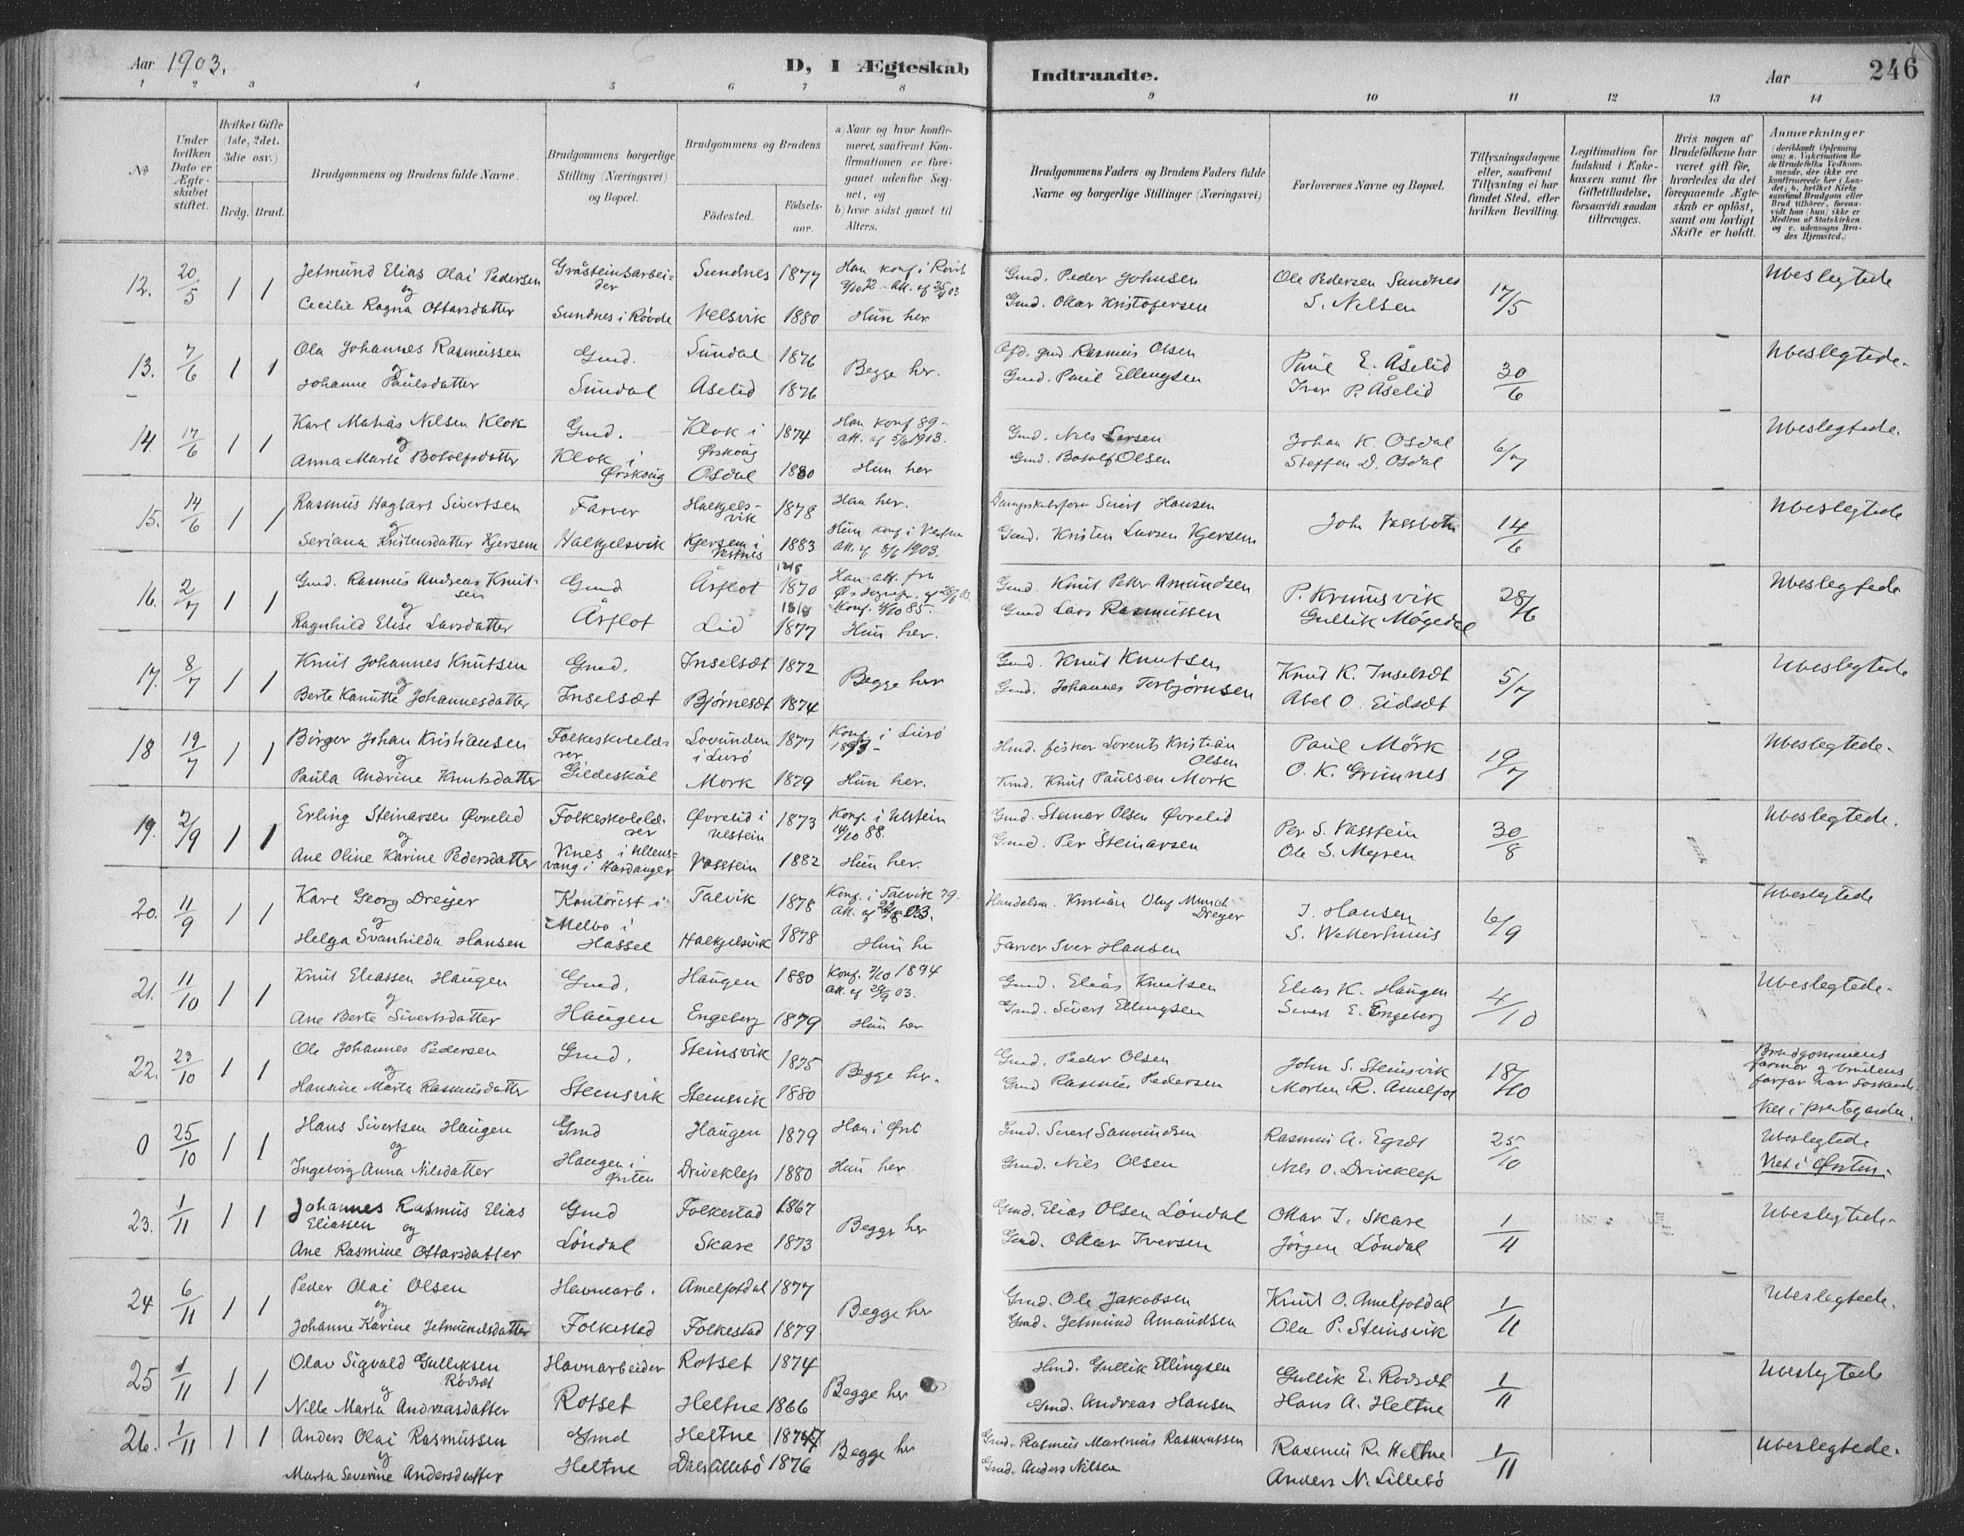 Aar 1903.
D, I Ægteskab
Indtraadte.
Aar
246
1 2 3 4 5 6 7 8 9 10 11 12 13 14
No
Under hvilken Dato er Ægteskabet stiftet.
Hvilket Gifte (1ste, 2det. 3die osv.)
Brdg. Brud.
Brudgommens og Brudens fulde Navne.
Brudgommens borgerlige Stilling (Næringsvei) og Bopæl.
Brudgommens og Brudens
Fødested.
Fødselsaar.
a) Naar og hvor konfirmeret, saafremt Konfirmationen er foregaaet udenfor Sognet, og
b) hvor sidst gaaet til Alters.
Brudgommens Faders og Brudens Faders fulde Navne og borgerlige Stillinger (Næringsvei)
Forlovernes Navne og Bopæl.
Tillysningsdagene eller, saafremt Tillysning ei har fundet Sted, efter hvilken Bevilling.
Legitimation for Indskud i Enkekassen samt for Giftetilladelse, forsaavidt saadan tiltrænges.
Hvis nogen af Brudefolkene har været gift før, hvorledes da det foregaaende Ægteskab er opløst, samt om lovligt Skifte er holdt.
Anmærkninger
12. 20/5 1 1 Jetmund Elias Olai Pedersen Gråsteinsarbeider Sundnes 1877 Gmd. Peder Johnsen Ole Pedersen Sundnes 17/5 Ubeslegtede
og
Cecilie Ragna Ottarsdatter Sundnes i Røvde Velsvik 1880 Hun her Gmd. Ottar Kristofersen S. Nilsen
13. 7/6 1 1 Ola Johannes Rasmussen Gmd. Sundal 1876 Begge her. gmd Rasmus Olsen Paul E. Åselid 30/6 Ubeslegtede.
og
Johanne Paulsdatter Sundal Åselid 1876 Gmd. Paul Ellingsen Iver P. Åselid
14. 17/6 1 1 Karl Matias Nilsen Klok Gmd. Klok i Ørskoug 1874 Han konf 89 - att. af 5/6 1903. Gmd. Nils Larsen Johan K. Osdal 6/7 Ubeslegtede.
og
Anna Marta Botolfsdatter Klok i Ørskoug Osdal 1880 Hun her Gmd. Botolf Olsen Steffen D. Osdal
15. 14/6 1 1 Rasmus Hagbart Sivertsen Farver Halkjelsvik 1878 Han her. Sivert Hansen John Vassbotn 14/6 Ubeslegtede
og
Seriana Kristensdatter Kjersem Halkjelsvik Kjersem i Vestnes 1883 Hun konf i Vestnes att. af 8/6 1903. Gmd. Kristen Larsen Kjersem
16. 2/7 1 1 Gmd. Rasmus Andreas Knutsen Gmd Årflot 1870 Han att. fra konf. 4/10 85. Gmd Knut Petter Amundsen P. Krumsvik 28/6 Ubeslegtede
og
Ragnhild Elise Larsdatter Årflot Lid 1877 Hun her. Gmd Lars Rasmussen Gullik Møgedal
17. 8/7 1 1 Knut Johannes Knutsen Gmd. Inselsæt 1872 Begge her Gmd. Knut Knutsen Knut K. Inselsæt 5/7 Ubeslegtede
og
Berte Kanutte Johannesdatter Inselsæt Bjørnesæt 1874 Gmd. Johannes Torbjørnsen Abel O. Eidsæt
18 19/7 1 1 Birger Johan Kristiansen Folkeskolelærer Lovunden i Lurø 1877 Konf. i Lurø fisker Lorents Kristian Olsen Paul Mörk 19/7 Ubeslegtede.
og
Paula Andrine Knutsdatter Gildeskål Mork 1879 Hun her. Gmd. Knut Paulsen Mork O. K. Grimnes
19. 2/9 1 1 Erling Steinarsen Øvrelid Folkeskolelærer Øvrelid i Ulstein 1873 Konf. i Ulstein 14/10 88. Gmd. Steinar Olsen Øvrelid Per S. Vasstein 30/8 Ubeslegtede.
og
Ane Oline Karine Pedersdatter Vines i Ullensvang i Hardanger Vasstein 1882 Hun her. Gmd. Per Steinarsen Ole S. Myren
20. 11/9 1 1 Karl Georg Dreyer Kontorist i Talvik 1878 Konf. i Talvik Handelsm. Kristian Oluf Munch Dreyer I. Hansen 6/9 Ubeslegtede
og
Helga Svanhilda Hansen Melbo i Hassel Halkjelsvik 1878 Hun her Farver Iver Hansen S. Welterhuus
21. 11/10 1 1 Knut Eliassen Haugen Gmd. Haugen 1880 Konf. 7/10 1894 att. af 29/9 03. Gmd. Elias Knutsen Elias K. Haugen 4/10 Ubeslegtede.
og
Ane Berte Sivertsdatter Haugen Engeberg 1879 Hun her Gmd. Sivert Ellingsen Sivert E. Engeberg
22. 23/10 1 1 Ole Johannes Pedersen Gmd. Steinsvik 1875 Begge her. Gmd. Peder Olsen John S. Steinsvik 18/10 Brudgommens farmor og brudens farfar har søskende
og
Hansine Marta Rasmusdatter Steinsvik Steinsvik 1880 Gmd Rasmus Pedersen Morten R. Amelfot Viet i prestegarden.
0 25/10 1 1 Hans Sivertsen Haugen Gmd Haugen 1879 Han i Ørst Gmd. Sivert Samundsen Rasmus A. Egset 25/10 Ubeslegtede
og
Ingeborg Anna Nilsdatter Haugen i Ørsten Driveklep 1880 Hun her Gmd. Nils Olsen Nils O. Driveklep Viet i Ørsten.
23. 1/11 1 1 Johannes Rasmus Elias Eliassen Gmd Folkestad 1867 Begge her Gmd. Elias Olsen Løndal Ottar I. Skare 1/11 Ubeslegtede.
og
Ane Rasmine Ottarsdatter Løndal Skare 1873 Gmd. Ottar Iversen Jørgen Løndal
24 6/11 1 1 Peder Olai Olsen Havnearb. Amelfotdal 1877 Begge her Gmd. Ole Jakobsen Knut O. Amelfotdal 1/11 Ubeslegtede.
og
Johanne Karine Jetmundsdatter Folkestad Folkestad 1879 Gmd. Jetmund Amundsen Ola P. Steinsvik
25 1/11 1 1 Olav Sigvald Gulliksen Rodset Havnarbeider Rotset 1874 Begge her Gullik Ellingsen Gullik E. Rodsæt 1/11 Ubeslegtede
og
Nille Marta Andreasdatter Rotset Heltne 1866 Gmd. Andreas Hansen Hans A. Heltne
26. 1/11 1 1 Anders Olai Rasmussen Gmd Heltne Begge her Gmd. Rasmus Martinus Rasmussen Rasmus R. Heltne 1/11 Ubeslegtede.
og
Marta Severine Andersdatter Heltne Dals Lillebö 1876 Gmd. Anders Nilsen Anders N. Lillebö